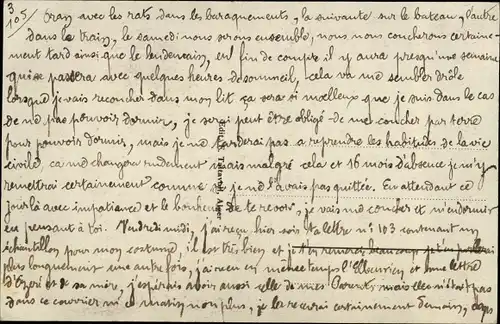 3
105/ avec les rats dans les baraquements, la suivante sur le bateau, l'autre
dans le train, le samedi nous serons ensemble, nous nous coucherons certaine-
ment tard ainsi que le lendemain, en fin de compte il y aura presqu'une semaine
qui se passera avec quelques heures de sommeil, cela va me sembler drôle
lorsque je vais recoucher dans mon lit ça sera si moelleux que je suis dans le cas
de ne pas pouvoir dormir, je serai peut être obligé de me coucher par terre
pour pouvoir dormir, mais je ne tarderai pas a reprendre les habitudes de la vie
civile, ça me changera rudement mais malgré cela et 16 mois d'absence je m'y
remettrai certainement comme si je ne l'avais pas quittée. En attendant ce
jour là avec impatience et le bonheur de te revoir, je vais me coucher et m'endormir
en pensant à toi. Vendredi midi, j'ai reçu hier soir ta lettre n° 103 contenant un
échantillon pour mon costume, il est très bien et je t'en parlerai
plus longuement une autre fois, j'ai reçu en même temps et une lettre
d' et de sa mère, j'espérais avoir aussi celle de mes Parents mais elle n'était pas
dans ce courrier ni ce matin non plus, je les recevrai certainement demain,